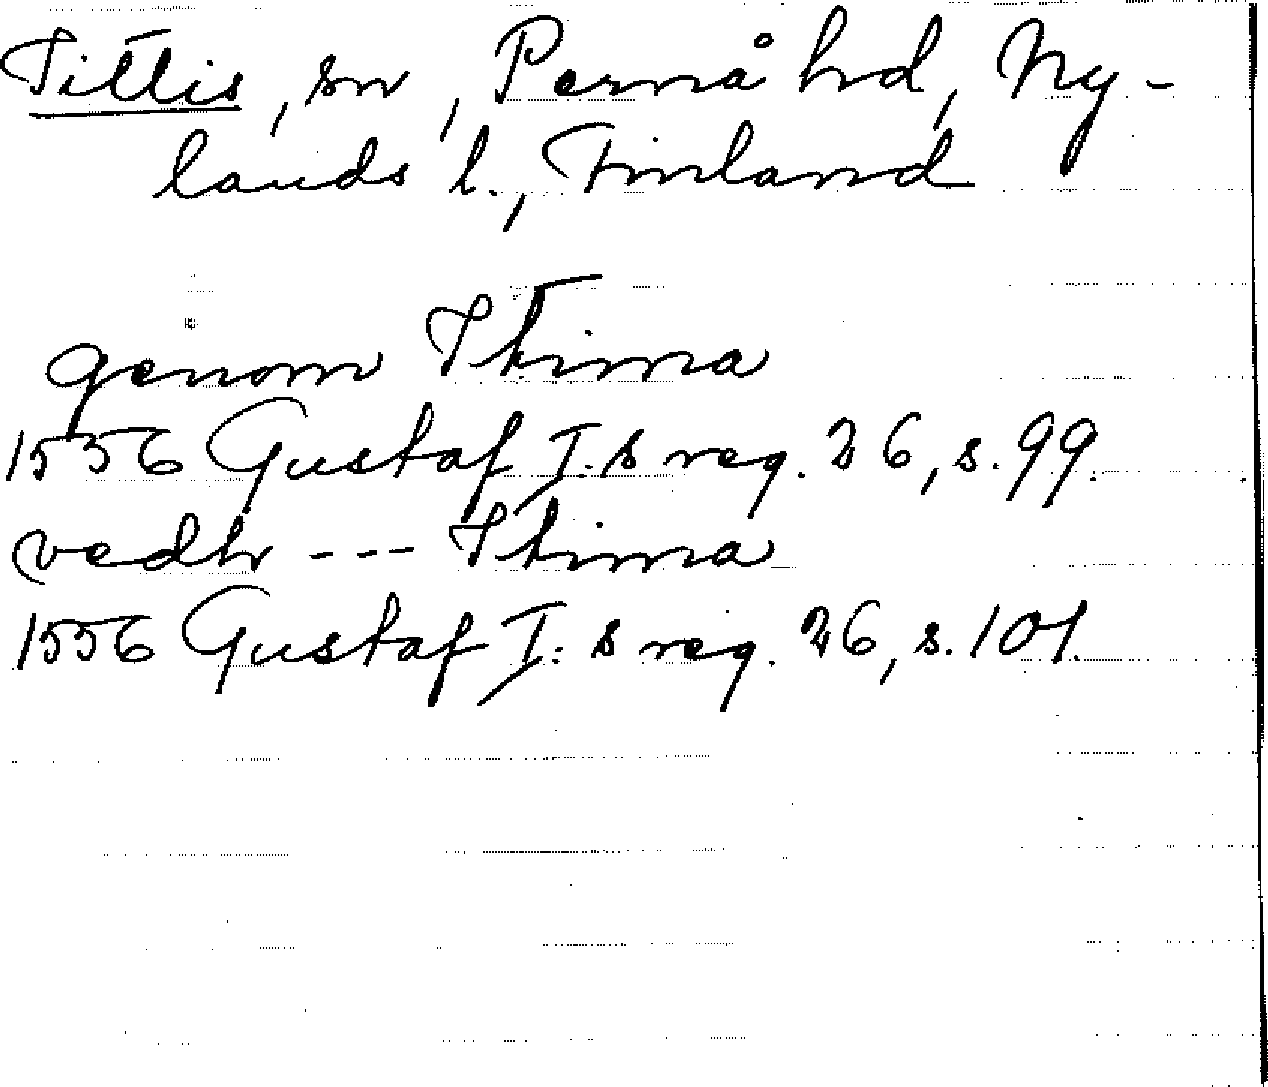 Tittis, sn, Pernå hd, Ny-
lands l., Finland
genom Thima
1556 Gustaf I:s reg. 26, s. 99.
vedh --- Thima
1556 Gustaf I:s reg. 26, s. 101.